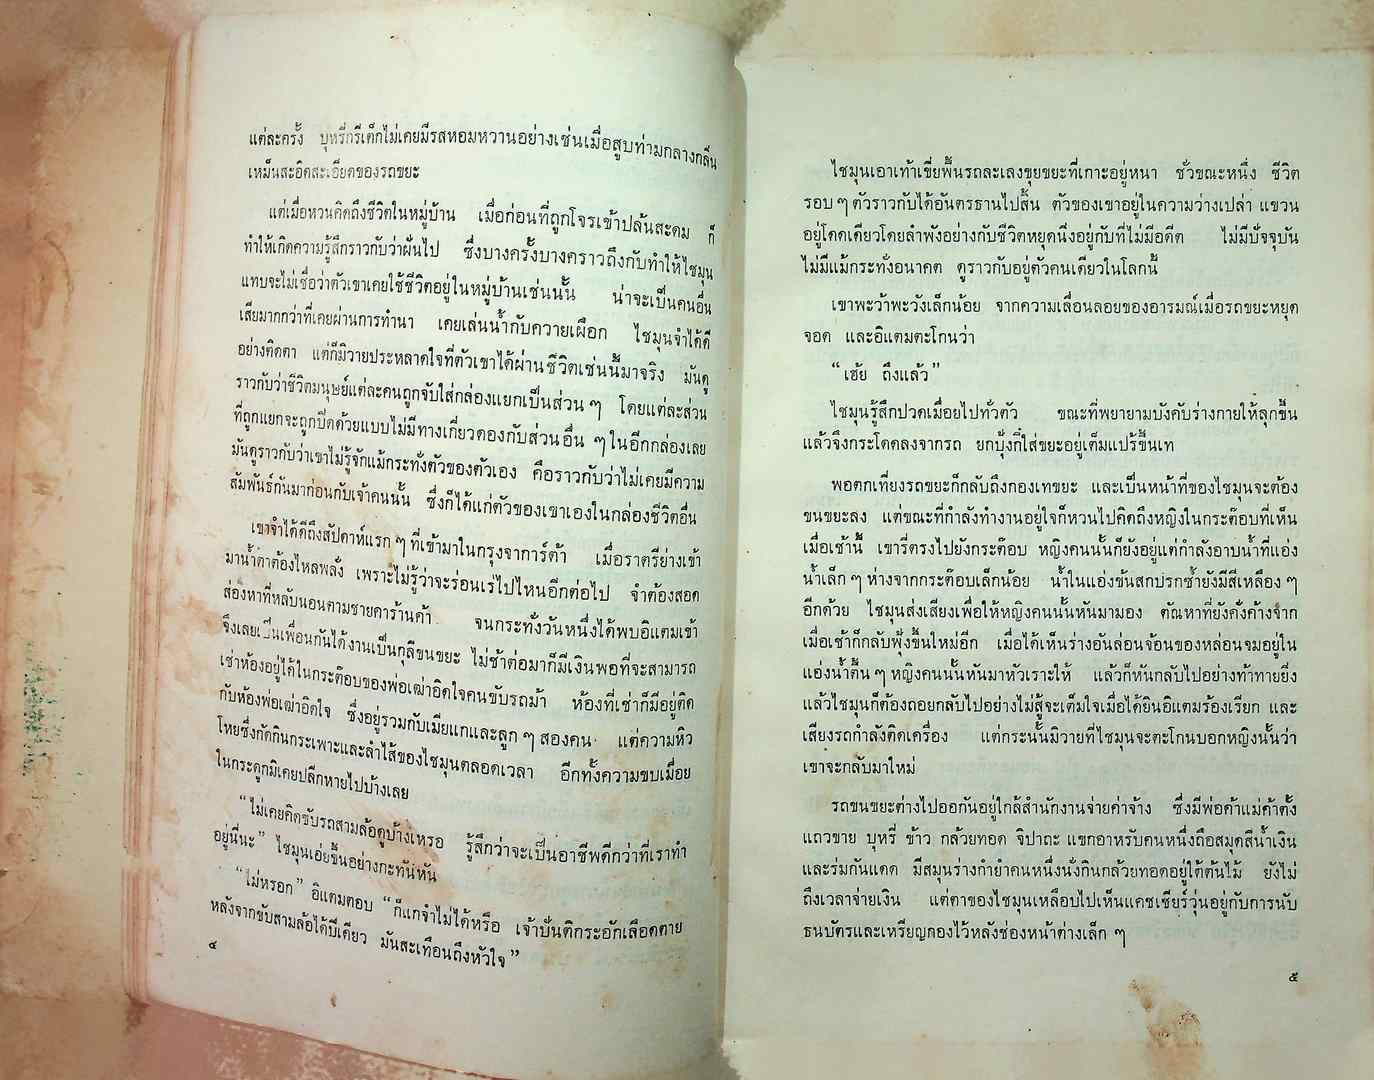 แต่ละครั้ง บุหรี่กรีเต็กไม่เคยมีรสหอมหวานอย่างเช่นเมื่อสูบท่ามกลางกลิ่น
เหม็นสะอิดสะเอียดของรถขยะ
แต่เมื่อหวนคิดถึงชีวิตในหมู่บ้าน เมื่อก่อนที่ถูกโจรเข้าปล้นสะดม ก็
ทำให้เกิดความรู้สึกราวกับว่าฝันไป ซึ่งบางครั้งบางคราวถึงกับทำให้ไชมุน
แทบจะไม่เชื่อว่าตัวเขาเคยใช้ชีวิตอยู่ในหมู่บ้านเช่นนั้น น่าจะเป็นคนอื่น
เสียมากกว่าที่เคยผ่านการทำนา เคยเล่นน้ำกับควายเผือก ไชมุนจำได้ดี
อย่างติดตา แต่ก็มิวายประหลาดใจที่ตัวเขาได้ผ่านชีวิตเช่นนี้มาจริง มันดู
ราวกับว่าชีวิตมนุษย์แต่ละคนถูกจับใส่กล่องแยกเป็นส่วน ๆ โดยแต่ละส่วน
ที่ถูกแยกจะถูกปิดด้วยแบบไม่มีทางเกี่ยวดองกับส่วนอื่น ๆ ในอีกกล่องเลย
มันดูราวกับว่าเขาไม่รู้จักแม้กระทั่งตัวของตัวเอง คือราวกับว่าไม่เคยมีความ
สัมพันธ์กันมาก่อนกับเจ้าคนนั้น ซึ่งก็ได้แก่ตัวของเขาเองในกล่องชีวิตอื่น
เขาจำได้ดีถึงสัปดาห์แรก ๆ ที่เข้ามาในกรุงจาการ์ต้า เมื่อราตรีย่างเข้า
มาน้ำตาต้องไหลพลั่ง เพราะไม่รู้ว่าจะร่อนเร่ไปไหนอีกต่อไป จำต้องสอด
ส่องหาที่หลับนอนตามชายคาร้านค้า จนกระทั่งวันหนึ่งได้พบอิแตมเข้า
จึงเลยเป็นเพื่อนกันได้งานเป็นกุลีขนขยะ ไม่ช้าต่อมาก็มีเงินพอที่จะสามารถ
เช่าห้องอยู่ได้ในกระต๊อบของพ่อเฒ่าอิดใจคนขับรถม้า ห้องที่เช่าก็มีอยู่ติด
กับห้องพ่อเฒ่าอิดใจ ซึ่งอยู่รวมกับเมียแกและลูก ๆ สองคน แต่ความหิว
โหยซึ่งกัดกินกระเพาะและลำไส้ของไชมุนตลอดเวลา อีกทั้งความขบเมื่อย
ในกระดูกมิเคยปลีกหายไปบ้างเลย
“ไม่เคยคิดขับรถสามล้อดูบ้างเหรอ รู้สึกว่าจะเป็นอาชีพดีกว่าที่เราทำ
อยู่นี่นะ” ไชมุนเอ่ยขึ้นอย่างกะทันหัน
“ไม่หรอก” อิแตมตอบ “ก็แกจำไม่ได้หรือ เจ้าปันติกระอักเลือดตาย
หลังจากขับสามล้อได้ปีเดียว มันสะเทือนถึงหัวใจ”
๔
ไชมุนเอาเท้าเขี่ยพื้นรถละเลงขุยขยะที่เกาะอยู่หนา ชั่วขณะหนึ่ง ชีวิต
รอบ ๆ ตัวราวกับได้อันตรธานไปสิ้น ตัวของเขาอยู่ในความว่างเปล่า แขวน
อยู่โดดเดี่ยวโดยลำพังอย่างกับชีวิตหยุดนิ่งอยู่กับที่ไม่มีอดีต ไม่มีปัจจุบัน
ไม่มีแม้กระทั่งอนาคต ดูราวกับอยู่ตัวคนเดียวในโลกนี้
เขาพะว้าพะวังเล็กน้อย จากความเลื่อนลอยของอารมณ์เมื่อรถขยะหยุด
จอด และอิแตมตะโกนว่า
“เฮ้ย ถึงแล้ว”
ไชมุนรู้สึกปวดเมื่อยไปทั่วตัว ขณะที่พยายามบังคับร่างกายให้ลุกขึ้น
แล้วจึงกระโดดลงจากรถ ยกบุ้งกี๋ใส่ขยะอยู่เต็มแปร้ขึ้นเท
พอตกเที่ยงรถขยะก็กลับถึงกองเทขยะ และเป็นหน้าที่ของไชมุนจะต้อง
ขนขยะลง แต่ขณะที่กำลังทำงานอยู่ใจก็หวนไปคิดถึงหญิงในกระต๊อบที่เห็น
เมื่อเช้านี้ เขารี่ตรงไปยังกระต๊อบ หญิงคนนั้นก็ยังอยู่แต่กำลังอาบน้ำที่แอ่ง
น้ำเล็ก ๆ ห่างจากกระต๊อบเล็กน้อย น้ำในแอ่งข้นสกปรกซ้ำยังมีสีเหลือง ๆ
อีกด้วย ไชมุนส่งเสียงเพื่อให้หญิงคนนั้นหันมามอง ตัณหาที่ยังคั่งค้างจาก
เมื่อเช้าก็กลับพุ้งขึ้นใหม่อีก เมื่อได้เห็นร่างอันล่อนจ้อนของหล่อนจมอยู่ใน
แอ่งน้ำตื้น ๆ หญิงคนนั้นหันมาหัวเราะให้ แล้วก็หันกลับไปอย่างท้าทายยิ่ง
แล้วไชมุนก็ต้องถอยกลับไปอย่างไม่สู้จะเต็มใจเมื่อได้ยินอิแตมร้องเรียก และ
เสียงรถกำลังติดเครื่อง แต่กระนั้นมิวายที่ไชมุนจะตะโกนบอกหญิงนั้นว่า
เขาจะกลับมาใหม่
รถขนขยะต่างไปออกันอยู่ใกล้สำนักงานจ่ายค่าจ้าง ซึ่งมีพ่อค้าแม่ค้าตั้ง
แถวขาย บุหรี่ ข้าว กล้วยทอด จิปาถะ แขกอาหรับคนหนึ่งถือสมุดสีน้ำเงิน
และร่มกันแดด มีสมุนร่างกำยำคนหนึ่งนั่งกินกล้วยทอดอยู่ใต้ต้นไม้ ยังไม่
ถึงเวลาจ่ายเงิน แต่ตาของไชมุนเหลือบไปเห็นแคชเชียร์วุ่นอยู่กับการนับ
ธนบัตรและเหรียญกองไว้หลังช่องหน้าต่างเล็ก ๆ
๕